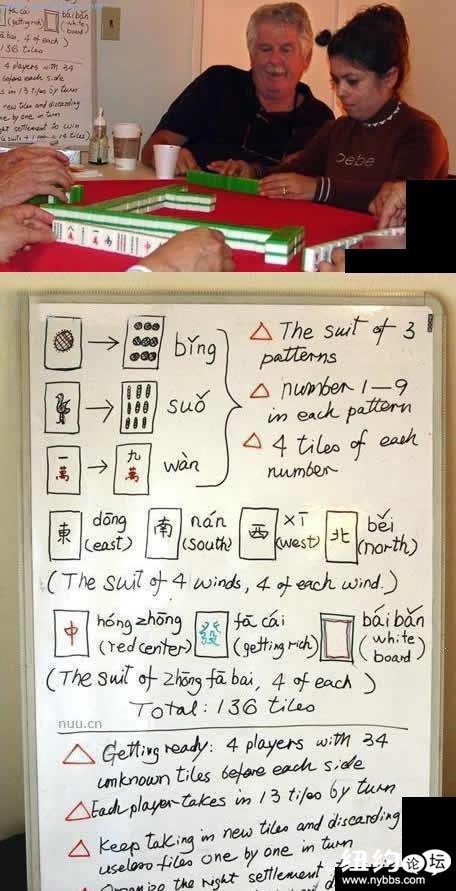 fā cái
(getting rich)
bái bǎn
(white
board)
fa bai, 4 of each)
136 tiles
4 players with 34
before each side
s in 13 tiles by turn
new tiles and discarding
one by one in turn
right settlement to win
Debe
bǐng
suǒ
一萬
九萬
wàn
△ The suit of 3
patterns
△ number 1—9
in each pattern
△ 4 tiles of each
number
東 dōng
(east)
南 nán
(south)
西 xī
(west)
北 běi
(north)
(The suit of 4 winds, 4 of each wind.)
中 hóng zhōng
(red center)
發 fā cái
(getting rich)
bái bǎn
(white
board)
(The suit of zhōng fā bai, 4 of each)
Total: 136 tiles
nuu.cn
△ Getting ready: 4 players with 34
unknown tiles before each side
△ Each player takes in 13 tiles by turn
△ Keep taking in new tiles and discarding
useless tiles one by one in turn
Organize the right settlement
纽约论坛
www.nybbs.com